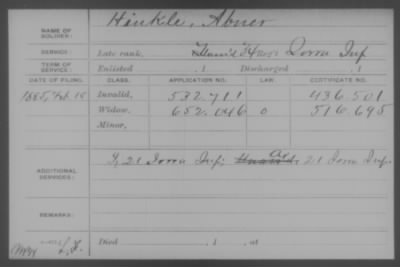 NAME OF SOLDIER: Hinkle, Abner
SERVICE: Late rank, Iowa Inf
TERM OF SERVICE: Enlisted , 1 Discharged , 1
DATE OF FILING. CLASS. APPLICATION NO. LAW. CERTIFICATE NO.
1885, Feb. 19 Invalid, 532.711 436.501
Widow, 652.046 O 516.695
Minor,
ADDITIONAL SERVICES: 21 Iowa Inf; 21 Iowa Inf.
REMARKS:
Died , 1 , at